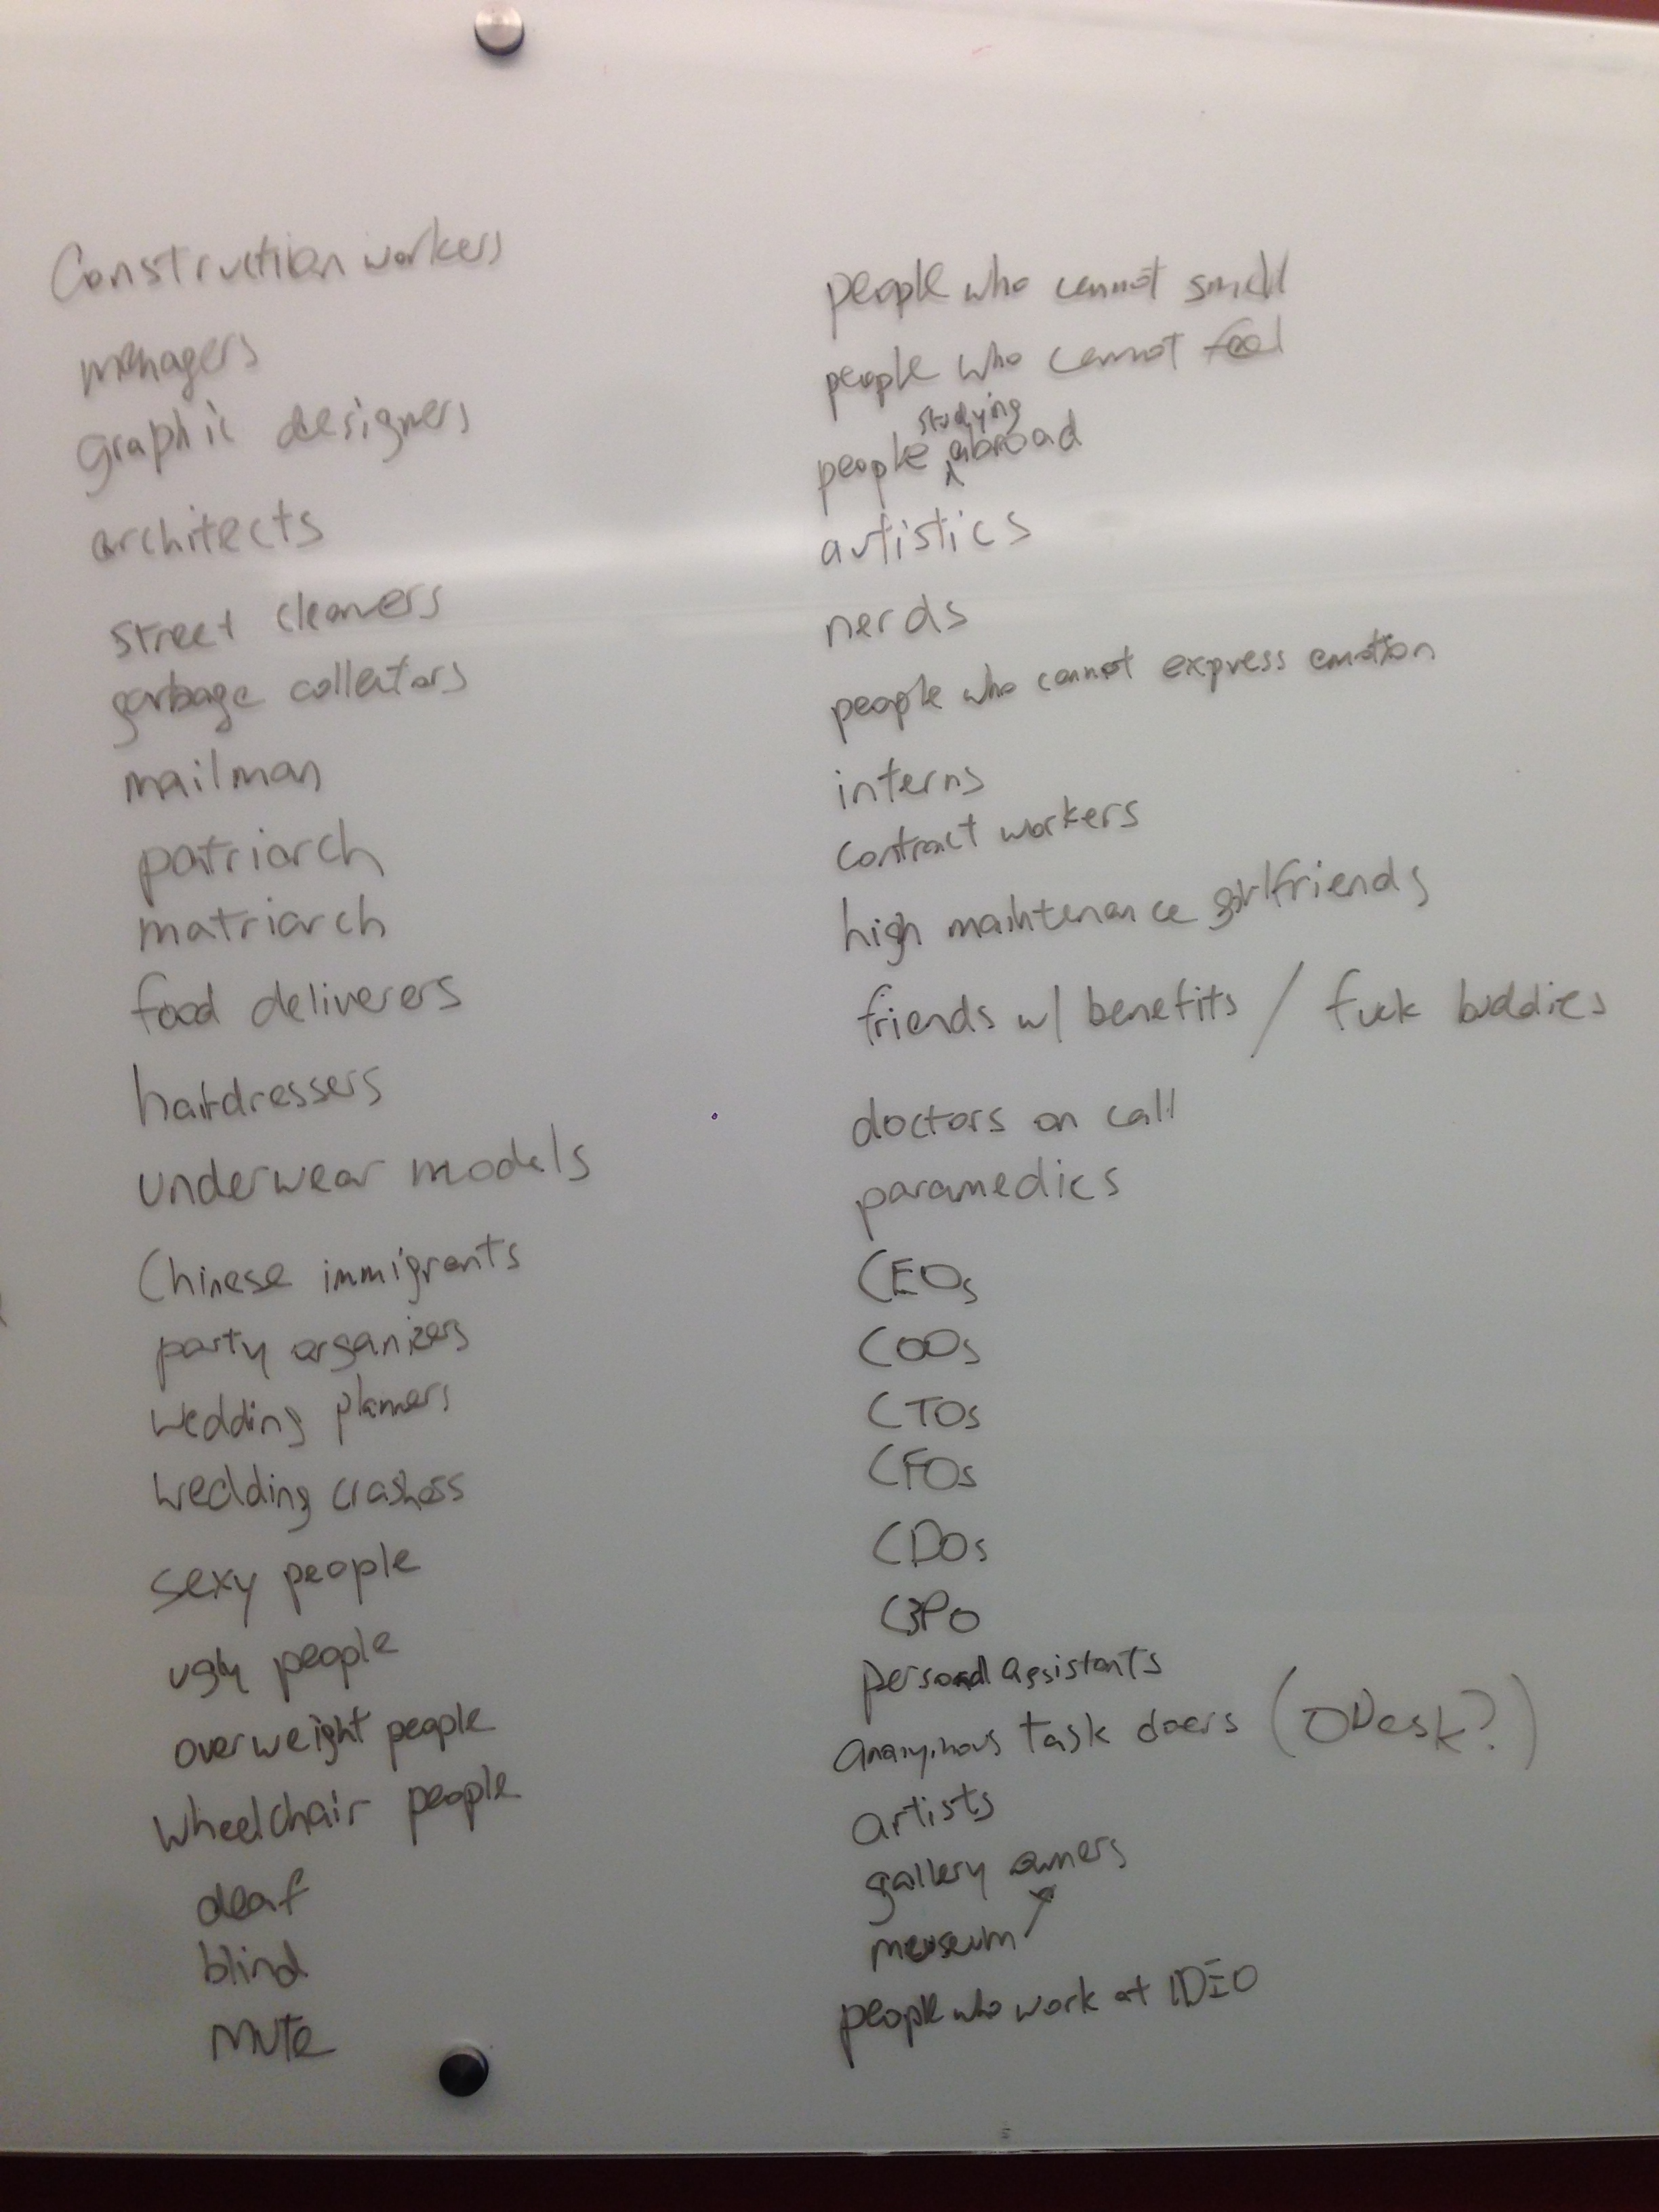 Construction workers
menagers
graphic designers
architects
street cleaners
garbage collectors
mailman
patriarch
matriarch
food deliverers
hairdressers
underwear models
Chinese immigrants
party organizers
wedding planners
wedding crashers
sexy people
ugly people
overweight people
wheelchair people
deaf
blind
mute
people who cannot smell
people who cannot feel
studying
people abroad
autistics
nerds
people who cannot express emotion
interns
contract workers
high maintenance girlfriends
friends w/ benefits / fuck buddies
doctors on call
paramedics
CEOs
COOs
CTOs
CFOs
CDOs
C3PO
personal assistants
anonymous task doers (ODesk?)
artists
gallery owners
museum
people who work at IDEO